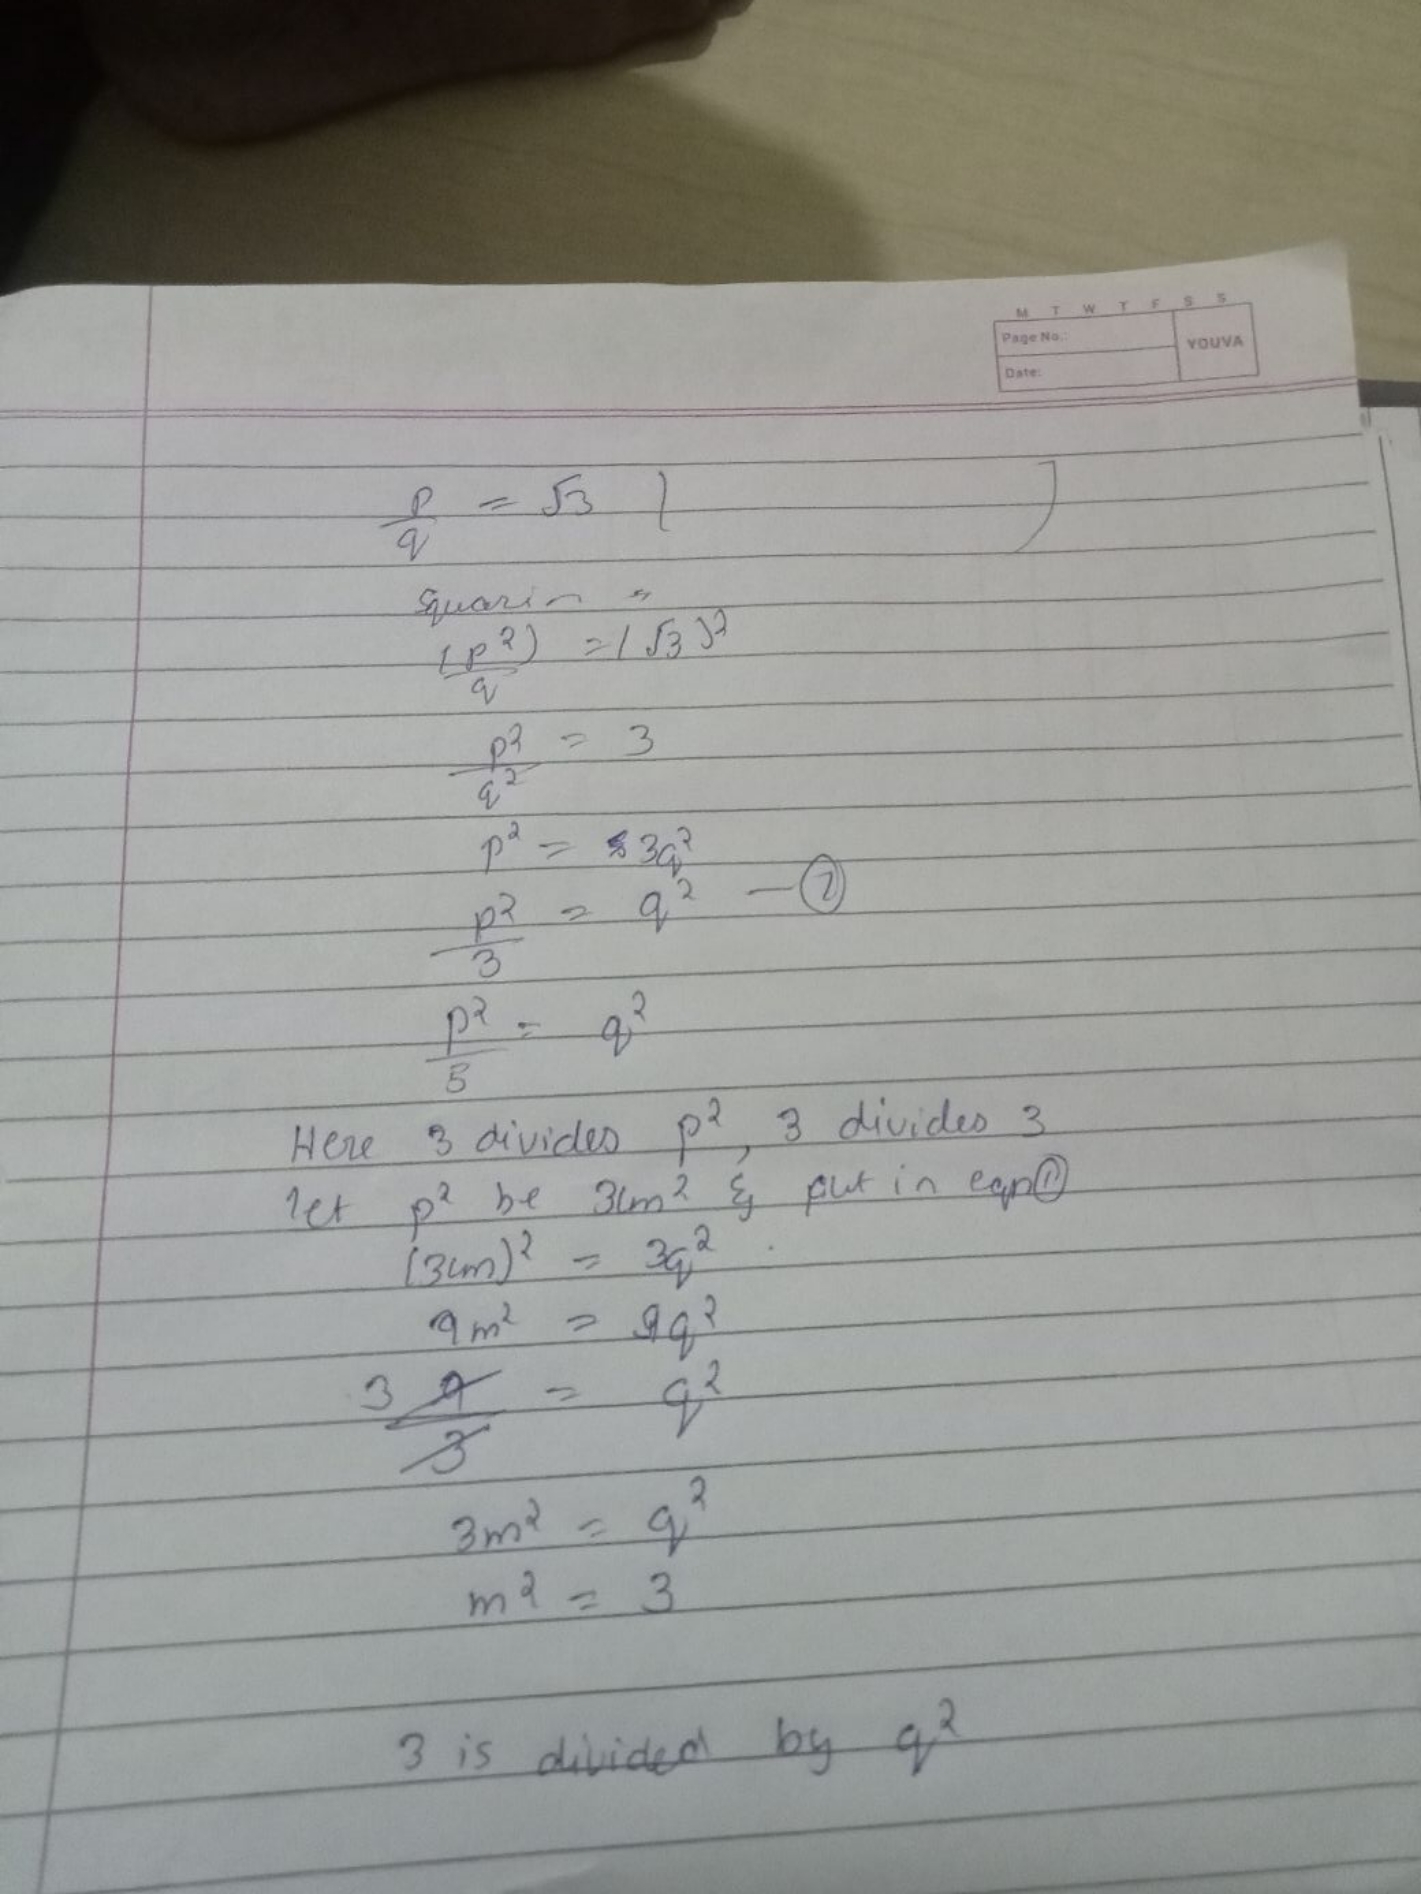 M T W T F S S
Page No.:
YOUVA
Date:
p/q = √3
(p²)/q = (√3)²
p²/q² = 3
p² = 3q²
p²/3 = q² —
p²/5 = q²
Here 3 divides p², 3 divides 3
let p² be 3(m² & put in eqn①
(3(m)² = 3q²
9m² = 9q²
3 9/3 = q²
3m² = q²
m² = 3
3 is divided by q²